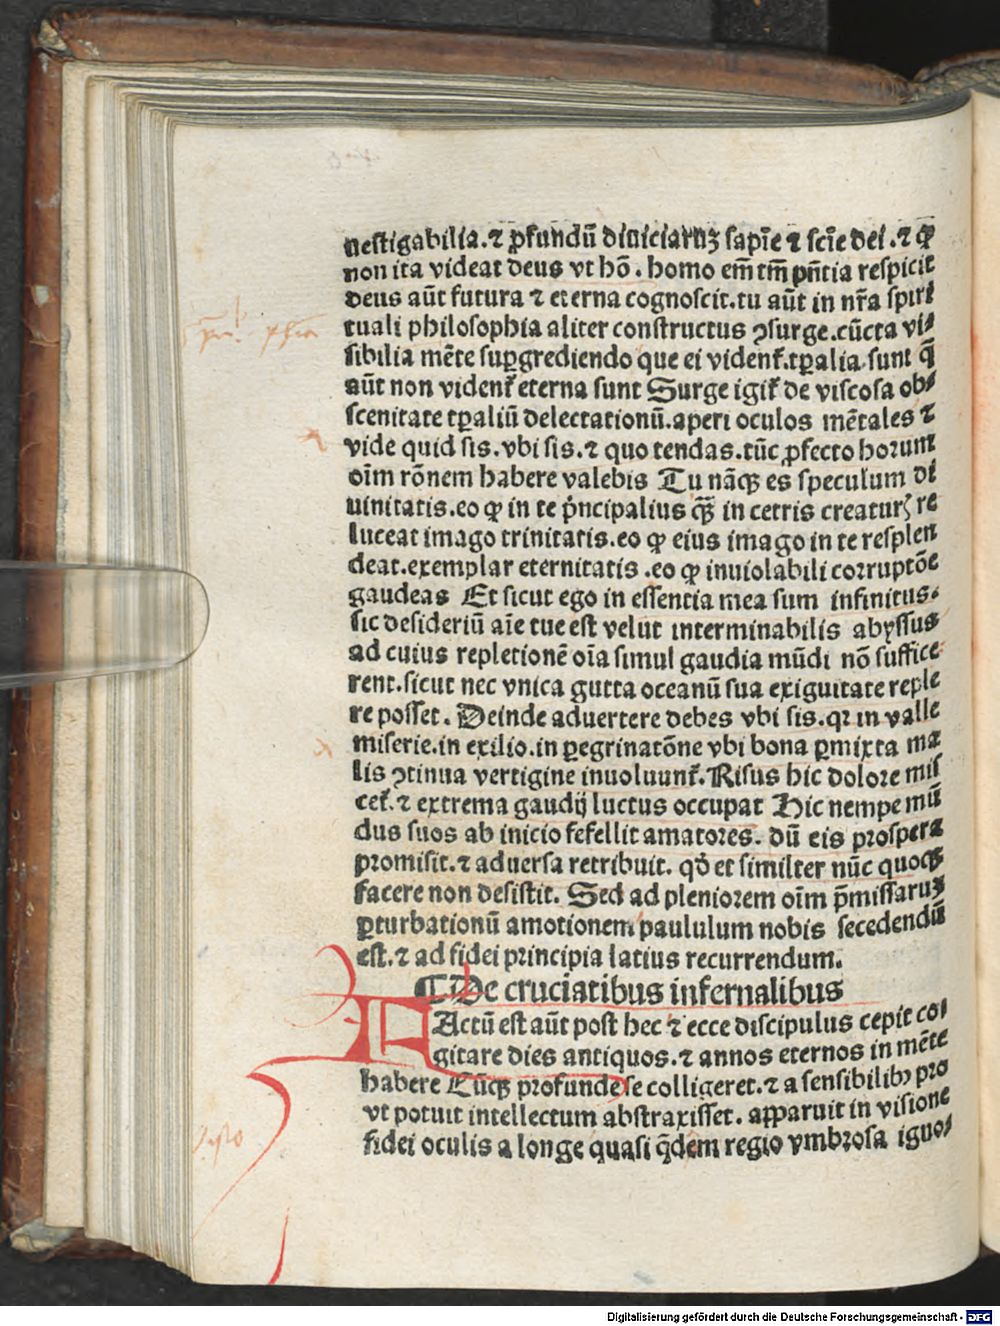 uestigabilia.⁊ ꝓfundū diuiciarūꝫ sapīe ⁊ scīe dei.⁊ ꝙ
non ita videat deus vt hō. homo em̄ tm̄ pñtia respicit
deus aūt futura ⁊ eterna cognoscit.tu aūt in nr̄a spiri
tuali philosophia aliter constructus ꝯsurge.cūcta vi⸗
sibilia mēte suꝑgrediendo que ei videnť.tꝑalia sunt q̄
aūt non videnť eterna sunt Surge igiť de viscosa ob⸗
scenitate tꝑaliū delectationū.aperi oculos mētales ⁊
vide quid sis.vbi sis.⁊ quo tendas.tūc ꝓfecto horum
oīm rōnem habere valebis Tu nāqꝫ es speculum di
uinitatis.eo ꝙ in te pⁱncipalius qꝫ̄ in cetris creaturꝭ re
luceat imago trinitatis.eo ꝙ eius imago in te resplen
deat.exemplar eternitatis .eo ꝙ inuiolabili corruptōe
gaudeas Et sicut ego in essentia mea sum infinitus.
sic desideriū aīe tue est velut interminabilis abyssus
ad cuius repletionē oīa simul gaudia mūdi nō suffice
rent.sicut nec vnica gutta oceanū sua exiguitate reple
re posset. Deinde aduertere debes vbi sis.qꝛ in valle
miserie.in exilio.in ꝑegrinatōne vbi bona ꝑmixta ma
lis ꝯtinua vertigine inuoluunť.Risus hic dolore mis
ceť.⁊ extrema gaudij luctus occupat Hic nempe mū
dus suos ab inicio fefellit amatores. dū eis prospera
promisit.⁊ aduersa retribuit. qđ et similter nūc quoqꝫ
facere non desistit. Sed ad pleniorem oīm p̄missaruꝫ
ꝑturbationū amotionem paululum nobis secedendū
est.⁊ ad fidei principia latius recurrendum.
¶ De cruciatibus infernalibus
FActū est aūt post hec ⁊ ecce discipulus cepit co⸗
gitare dies antiquos.⁊ annos eternos in mēte
habere Cūqꝫ profunde se colligeret.⁊ a sensibilibꝰ pro
vt potuit intellectum abstraxisset. apparuit in visione
fidei oculis a longe quasi q̄dem regio vmbrosa igno⸗
Digitalisierung gefördert durch die Deutsche Forschungsgemeinschaft - DFG